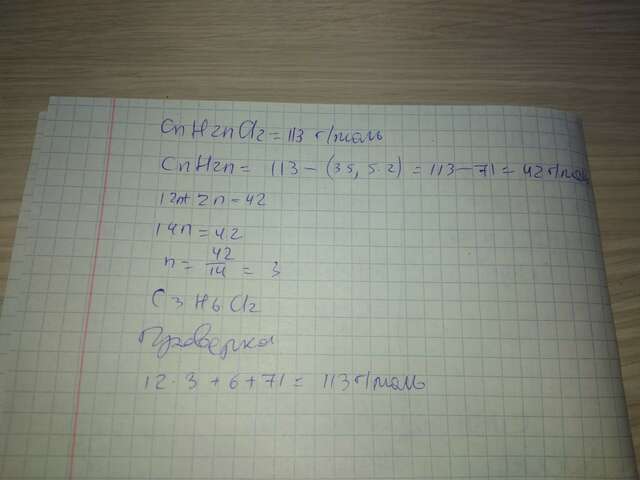 CnH2nCl2 = 113 г/моль
CnH2n = 113 – (35,5·2) = 113 – 71 = 42 г/моль
12n + 2n = 42
14n = 42
n = 42/14 = 3
C3H6Cl2
Проверка
12·3 + 6 + 71 = 113 г/моль